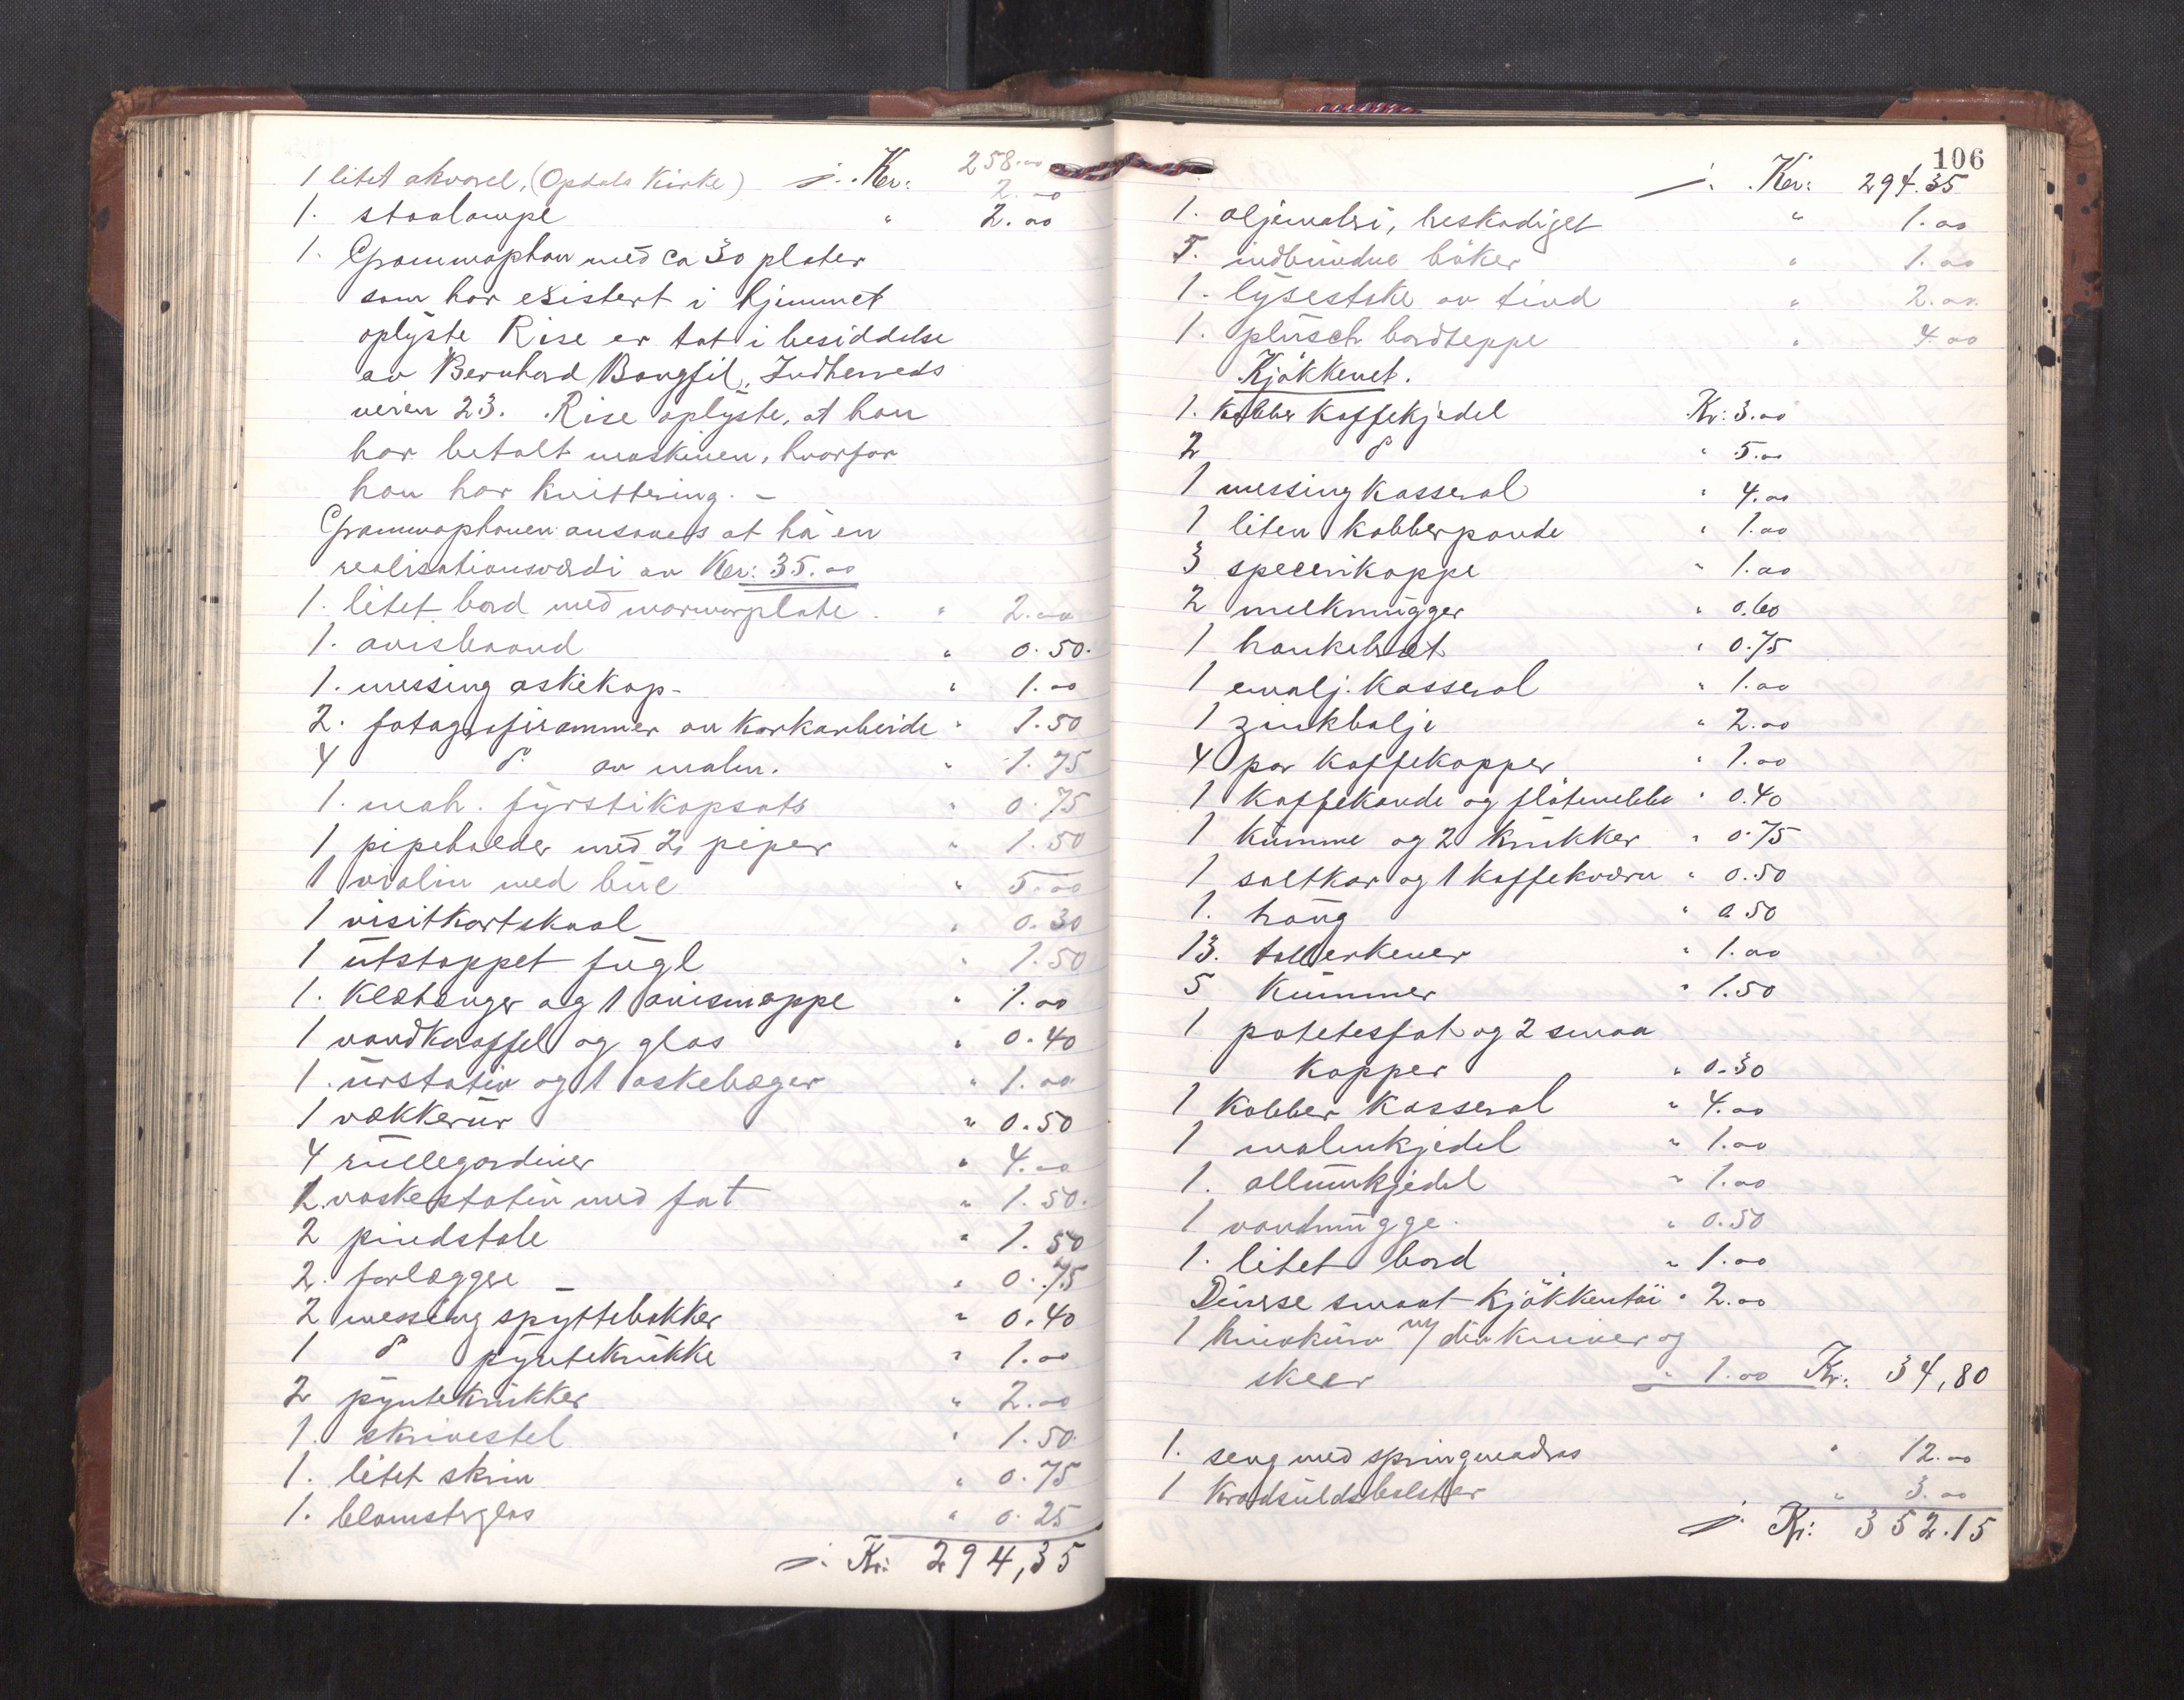 j. Kr: 258.00
1 litet akvarel, (Opdals Kirke) 2.00
1. staalampe " 2.00
1. Grammophon med ca 30 plater
som har existert i hjemmet
oplyste Rise er tat i besiddelse
av Bernhard Bangfil, Indherreds
veien 23. Rise oplyste, at han
har betalt maskinen, hvorfor
han har kvittering. –
Grammophonen ansaaes at ha en
realisationsværdi av Kr: 35.00
1. litet bord med marmorplate. " 2.00
1. avisbaand " 0.50.
1. messing askekop- " 1.00
2. fotografirammer av korkarbeide " 1.50
4 do av malm. " 1.75
1. mah. fyrstikopsats " 0.75
1 pipeholder med 2 piper " 1.50
1 violin med bue " 5.00
1 visitkortskaal " 0.30
1 utstoppet fugl " 1.50
1. klæhenger og 1 avismappe " 1.00
1 vandkaraffel og glas " 0.40
1. urstativ og 1 askebæger " 1.00
1 vækkerur " 0.50
4 rullegardiner " 4.00
1. vaskestativ med fat " 1.50.
2 pindstole " 1.50
2. forlægger " 0.75
2 messing spyttebakker " 0.40
1 do pyntekrukke " 1.00
2 pyntekrukker " 2.00
1. skrivestel " 1.50
1. litet skrin " 0.75
1. blomsterglas " 0.25
j. Kr: 294,35
106
j. Kr: 294.35
1. oljemaleri, beskadiget " 1.00
5. indbundne böker " 1.00
1. lysestake av tind " 2.00
1. plüsch bordteppe " 4.00
Kjökkenet.
1. kobber kaffekjedel Kr: 3.00
2 do " 5.00
1 messing kasserol " 4.00
1 liten kobberpande " 1.00
3 specerikoppe " 1.00
2 melkmugger " 0.60
1 kaukebræt " 0.75
1 emalj. kasserol " 1.00
1 zinkbalje " 2.00
4 par kaffekopper " 1.00
1 kaffekande og flötemugge " 0.40
1 kumme og 2 krukker " 0.75
1 saltkar og 1 kaffekværn " 0.50
1. haug " 0.50
13. tallerkener " 1.00
5 kummer " 1.50
1 potetesfat og 2 smaa
kopper " 0.30
1 kobber kasserol " 4.00
1 malmkjedel " 1.00
1. allumkjedel " 1.00
1 vandmugge. " 0.50
1. litet bord " 1.00
Diverse smaat kjökkentöi " 2.00
1 knivkurv m/ div kniver og
skeer " 1.00 Kr: 34,80
1. seng med springmadras " 12.00
1 krøduldsbolster " 3.00
j. Kr: 352.15